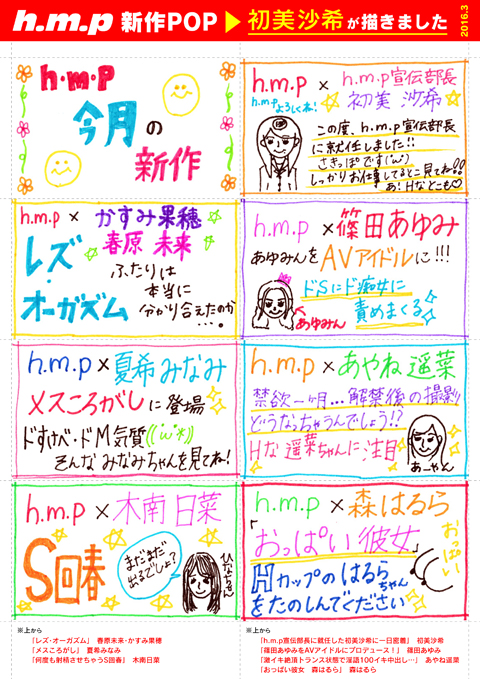 h.m.p 新作POP ▶ 初美沙希が描きました
2016.3
h・m・p
今月の
新作
h.m.p × h.m.p宣伝部長
初美 沙希
h.m.pよろしくね!
この度、h.m.p宣伝部長
に就任しました!!
さきっぽです('ω')
しっかりお仕事してるとこ見てね!!
あ!Hなとこも♡
h.m.p × かすみ果穂
春原 未来
レズ・
オーガズム
ふたりは
本当に
分かり合えたのか
・・・。
h.m.p ×篠田あゆみ
あゆみんをAVアイドルに!!!
ドSにド痴女に
責めまくる
あゆみん
h.m.p ×夏希みなみ
メスころがしに登場
ドすけべ・ドM気質((´ω`*))
そんなみなみちゃんを見てね!
h.m.p ×あやね遥菜
禁欲一ヶ月...解禁後の撮影
どうなっちゃうんでしょう!?
Hな遥菜ちゃんに注目
あーやん
h.m.p ×木南日菜
S回春
まだまだ
出るでしょ?
ひなちゃん
h.m.p ×森はるら
「おっぱい彼女」
Hカップのはるらちゃん
をたのしんでください
おっぱい
※上から
「レズ・オーガズム」 春原未来・かすみ果穂
「メスころがし」 夏希みなみ
「何度も射精させちゃうS回春」 木南日菜
※上から
「h.m.p宣伝部長に就任した初美沙希に一日密着」 初美沙希
「篠田あゆみをAVアイドルにプロデュース!」 篠田あゆみ
「激イキ絶頂トランス状態で淫語100イキ中出し…」 あやね遥菜
「おっぱい彼女 森はるら」 森はるら